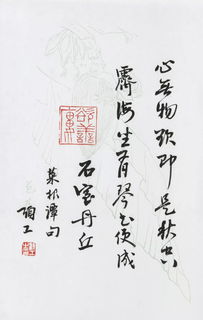 心無物欲即是秋空
霽海坐有琴书便成
石室丹丘
菜根譚句